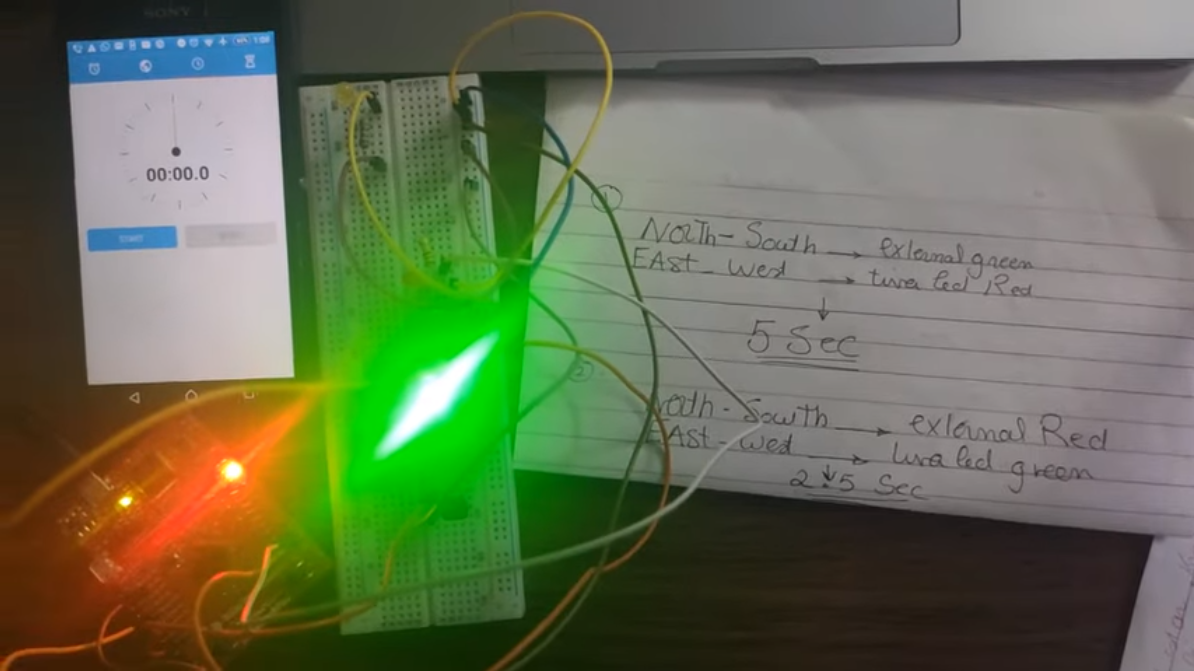 SONY
1:08
00:00.0
START
1
North-South → external green
EAST-west → tiva led Red
↓
5 Sec
2
North-South → external Red
EAST-west → tiva led green
2.5 Sec